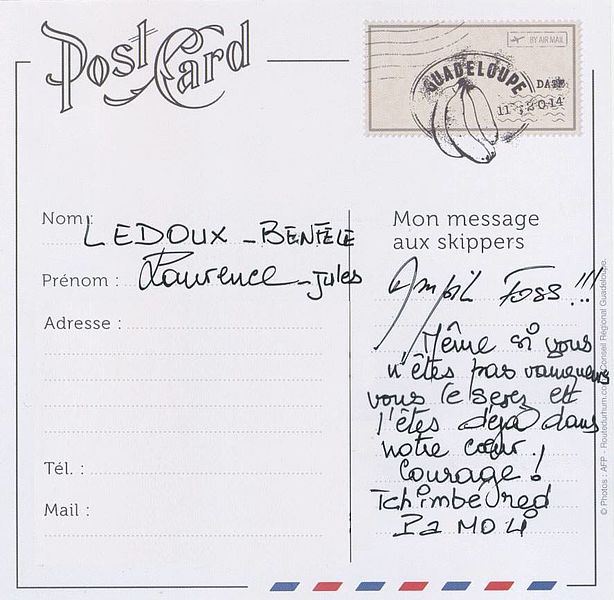 Post Card
BY AIR MAIL
GUADELOUPE
DATE
11 2014
Nom : LEDOUX - BENFELE
Prénom : Laurence - Jules
Adresse :
Tél. :
Mail :
Mon message
aux skippers
Ampil Foss !!!
Même si vous
n'êtes pas vainqueurs
vous le serez et
l'êtes déjà dans
notre cœur !
Courage !
Tchimbé red
Pa Moli
© Photos : AFP - Routedurhum.com Conseil Régional Guadeloupe.